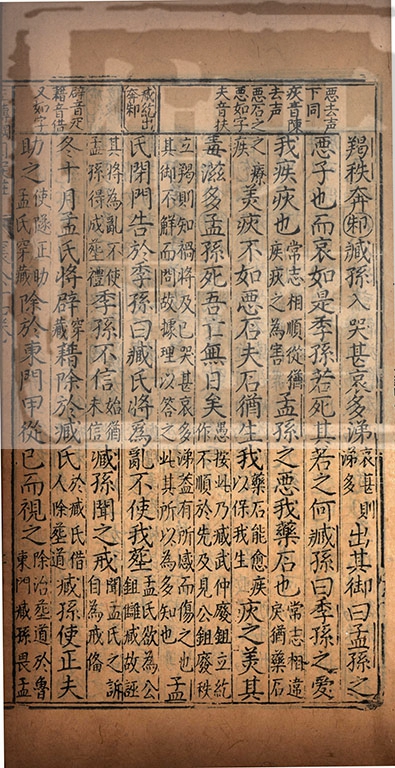 惡去声
下同
去声
惡石之
惡如字
夫音扶
臧紇出
奔邾
藉音借
又如字
羯秩奔邾臧孫入哭甚哀多涕哀甚則涕多出其御曰孟孫之
惡子也而哀如是季孫若死其若之何臧孫曰季孫之愛
我疾疢也常志相順從猶疾疢之為害孟孫之惡我藥石也常志相違戾猶藥石
之療疾美疢不如惡石夫石猶生我藥石能愈疾以保我生疢之美其
毒滋多孟孫死吾亡無日矣愚按此乃臧武仲廢鉏立紇作不順於先及見公鉏廢秩
立羯則知禍將及已哭甚哀多涕蓋有所感而傷之也其御不解而問故據理以答之此其所以為多知也孟
氏閉門告於季孫曰臧氏將為亂不使我塟孟氏欲為公鉏讎臧故誣
其將為亂不使孟孫得成塟禮季孫不信始猶未信臧孫聞之戒聞孟氏之訴自為戒備
冬十月孟氏將辟穿藏藉除於臧氏於臧氏借人除塟道臧孫使正夫
助之使隧正助孟氏穿藏除於東門甲從已而視之除治塟道於魯東門臧孫畏孟